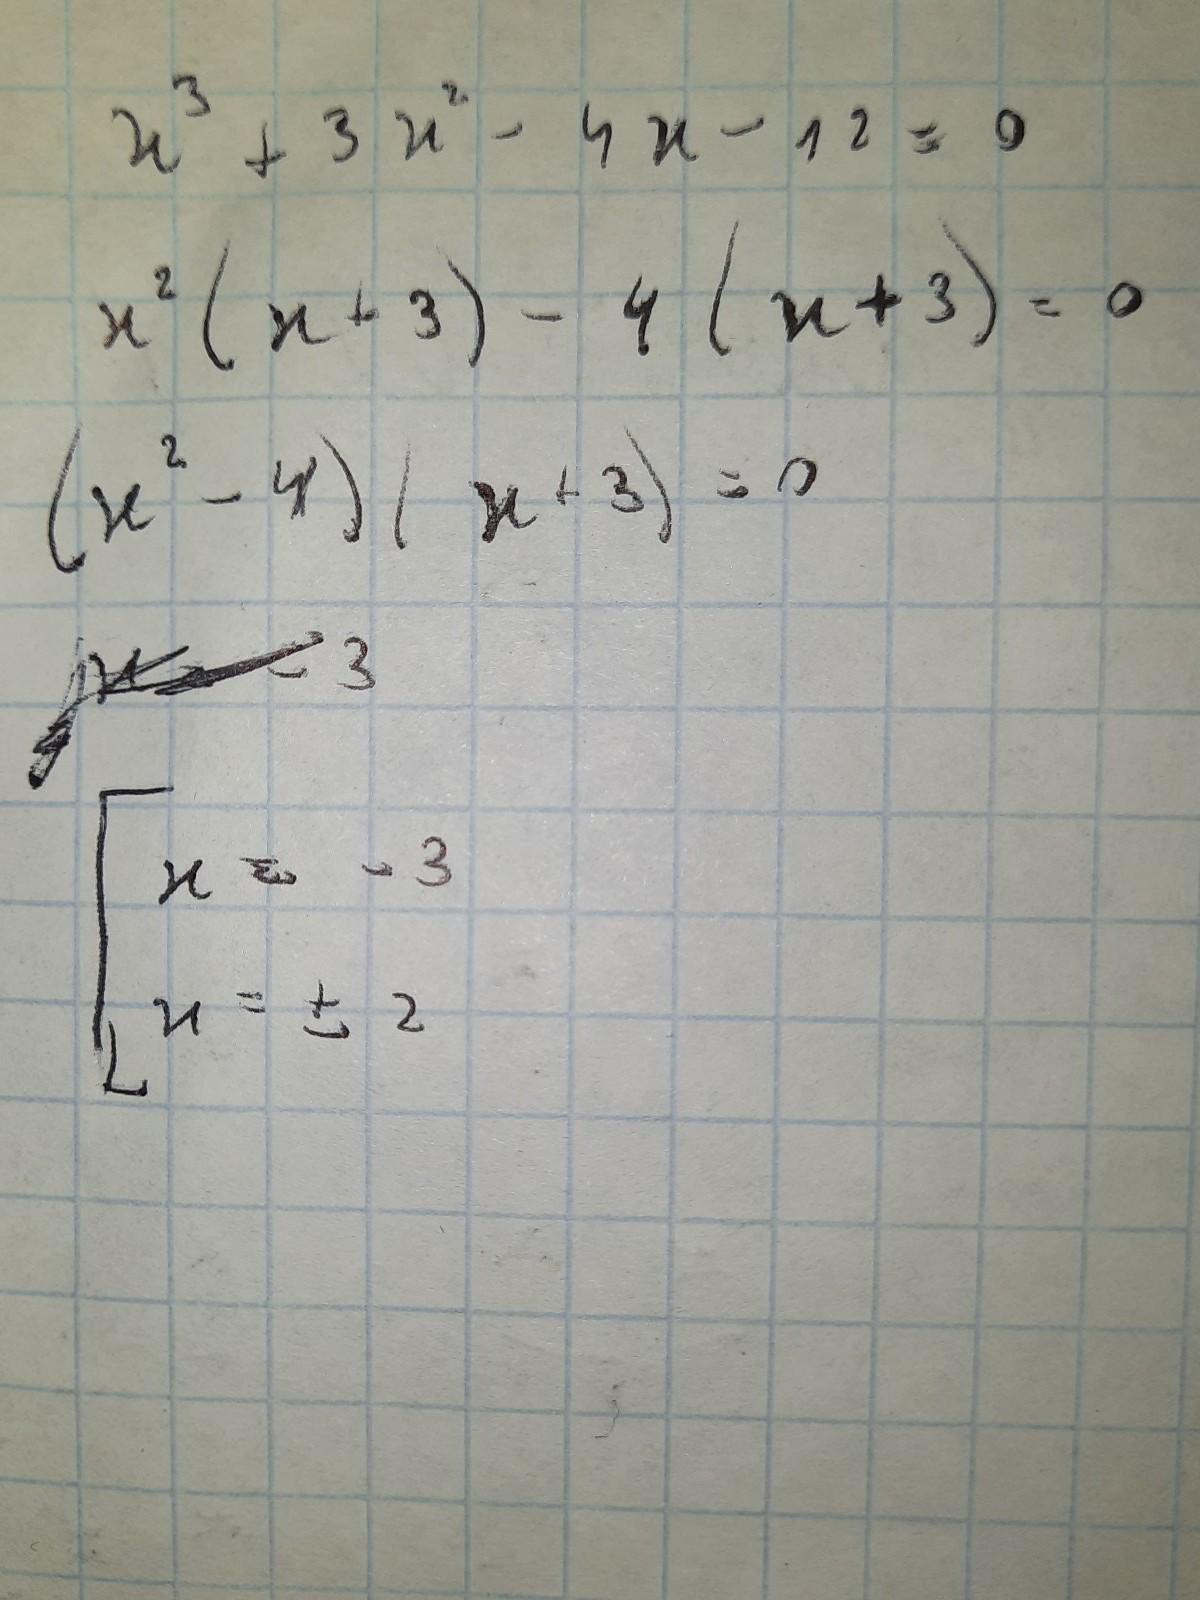 x³ + 3x² - 4x - 12 = 0
x² (x + 3) - 4 (x + 3) = 0
(x² - 4) (x + 3) = 0
- 3
x = - 3
x = ± 2